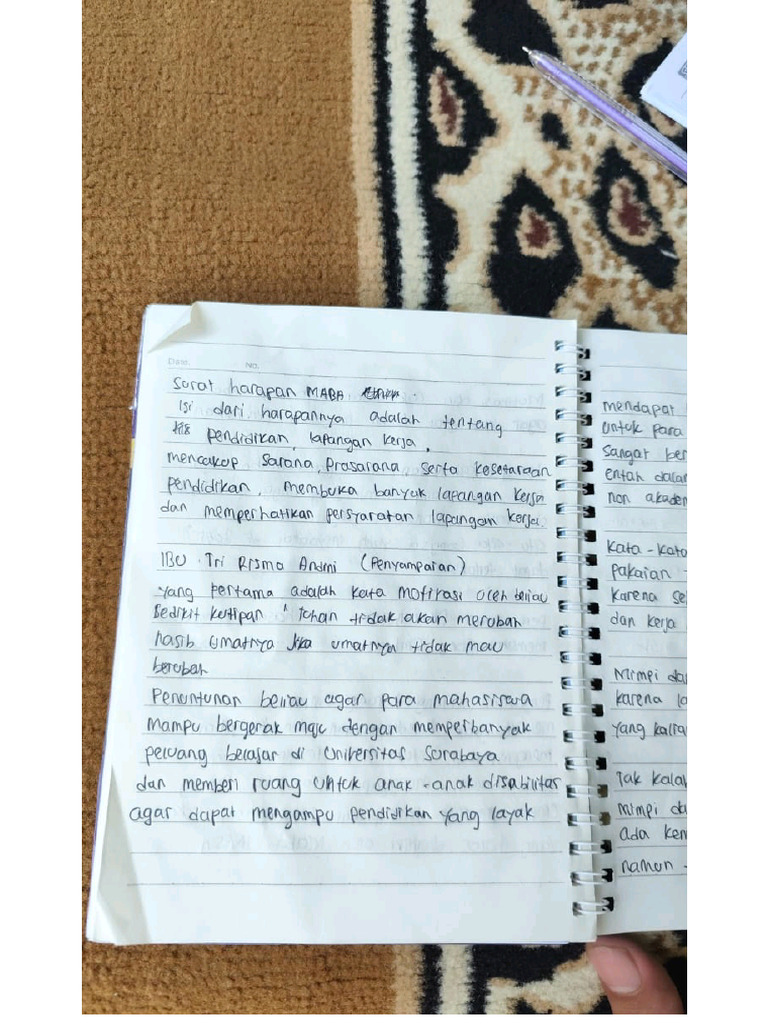 Date. No.
Surat harapan MABA
Isi dari harapannya adalah tentang
pendidikan, lapangan kerja,
mencakup sarana, prasarana, serta kesetaraan
pendidikan, membuka banyak lapangan kerja
dan memperhatikan persyaratan lapangan kerja.
IBU Tri Risma Andini (Penyampaian)
yang pertama adalah kata motifasi oleh beliau
Sedikit kutipan " tuhan tidak akan merubah
nasib umatnya jika umatnya tidak mau
berubah
Penuntunan beliau agar para mahasiswa
mampu bergerak maju dengan memperbanyak
peluang belajar di Universitas Surabaya
dan memberi ruang untuk anak-anak disabilitas
agar dapat mengampu pendidikan yang layak
mendapat
untuk para
Sangat ber
entah dalam
non akadem
Kata-kata
pakaian
karena se
dan kerja
Mimpi da
karena la
yang kalia
Tak kalah
mimpi da
ada kem
namun -